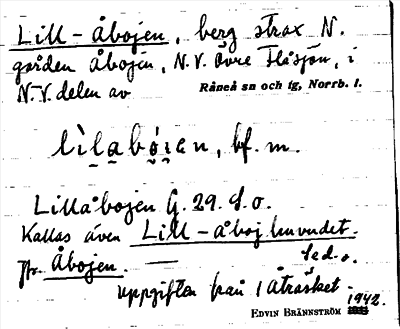 Lill-Åbojen, berg strax N.
gården Åbojen, N.V. Övre Flåsjön, i
N.V. delen av Råneå sn och tg, Norrb. l.
lìlabǫ́ιεn, bf. m.
Lillåbojen G. 29. S.o.
Kallas även Lill-åboj huvudet.
Jfr. Åbojen. — Led. o.
uppgiften från 1 Åträsket.
1942.
EDVIN BRÄNNSTRÖM